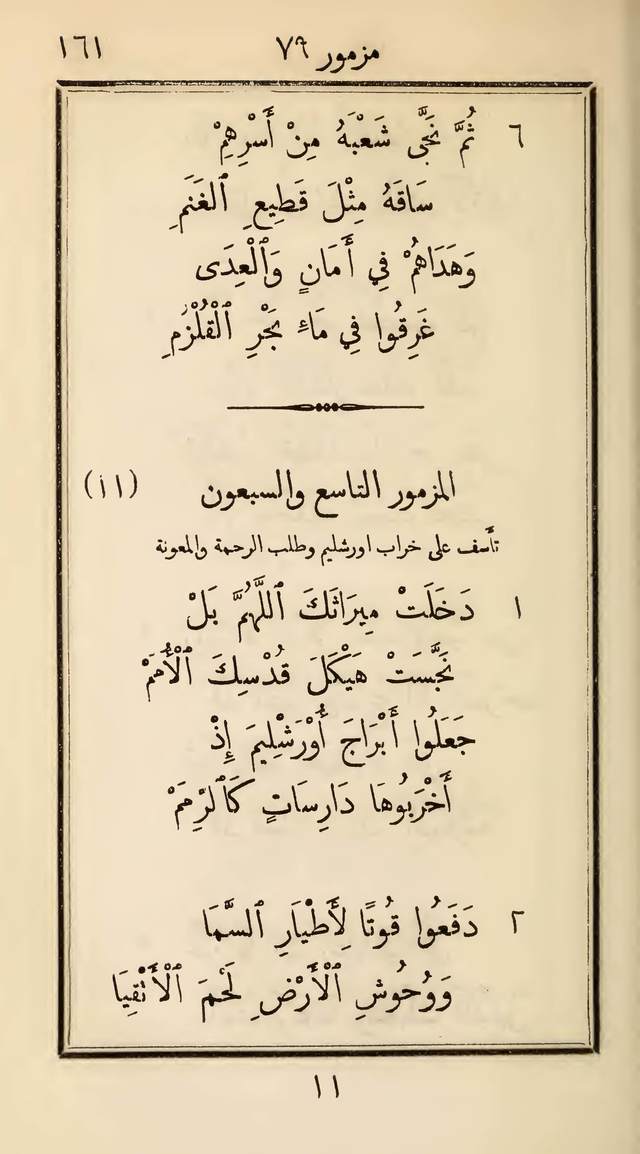 ١٦١ مزمور ٧٩
٦ ثُمَّ نَجَّى شَعْبَهُ مِنْ أَسْرِهِمْ
سَاقَهُ مِثْلَ قَطِيعِ ٱلغَنَمِ
وَهَدَاهُمْ فِي أَمَانٍ وَٱلْعِدَى
غَرِقُوا فِي مَاءِ بَحْرِ ٱلْقُلْزُمِ
المزمور التاسع والسبعون (١١)
تأسف على خراب اورشليم وطلب الرحمة والمعونة
١ دَخَلَتْ مِيرَاثَكَ ٱللَّهُمَّ بَلْ
نَجَّسَتْ هَيْكَلَ قُدْسِكَ ٱلْأُمَمْ
جَعَلُوا أَبْرَاجَ أُورَشْلِيمَ إِذْ
أَخْرَبُوهَا دَارِسَاتٍ كَٱلرِّمَمْ
٢ دَفَعُوا قُوتًا لِأَطْيَارِ ٱلسَّمَا
وَوُحُوشِ ٱلْأَرْضِ لَحْمَ ٱلْأَتْقِيَا
١١